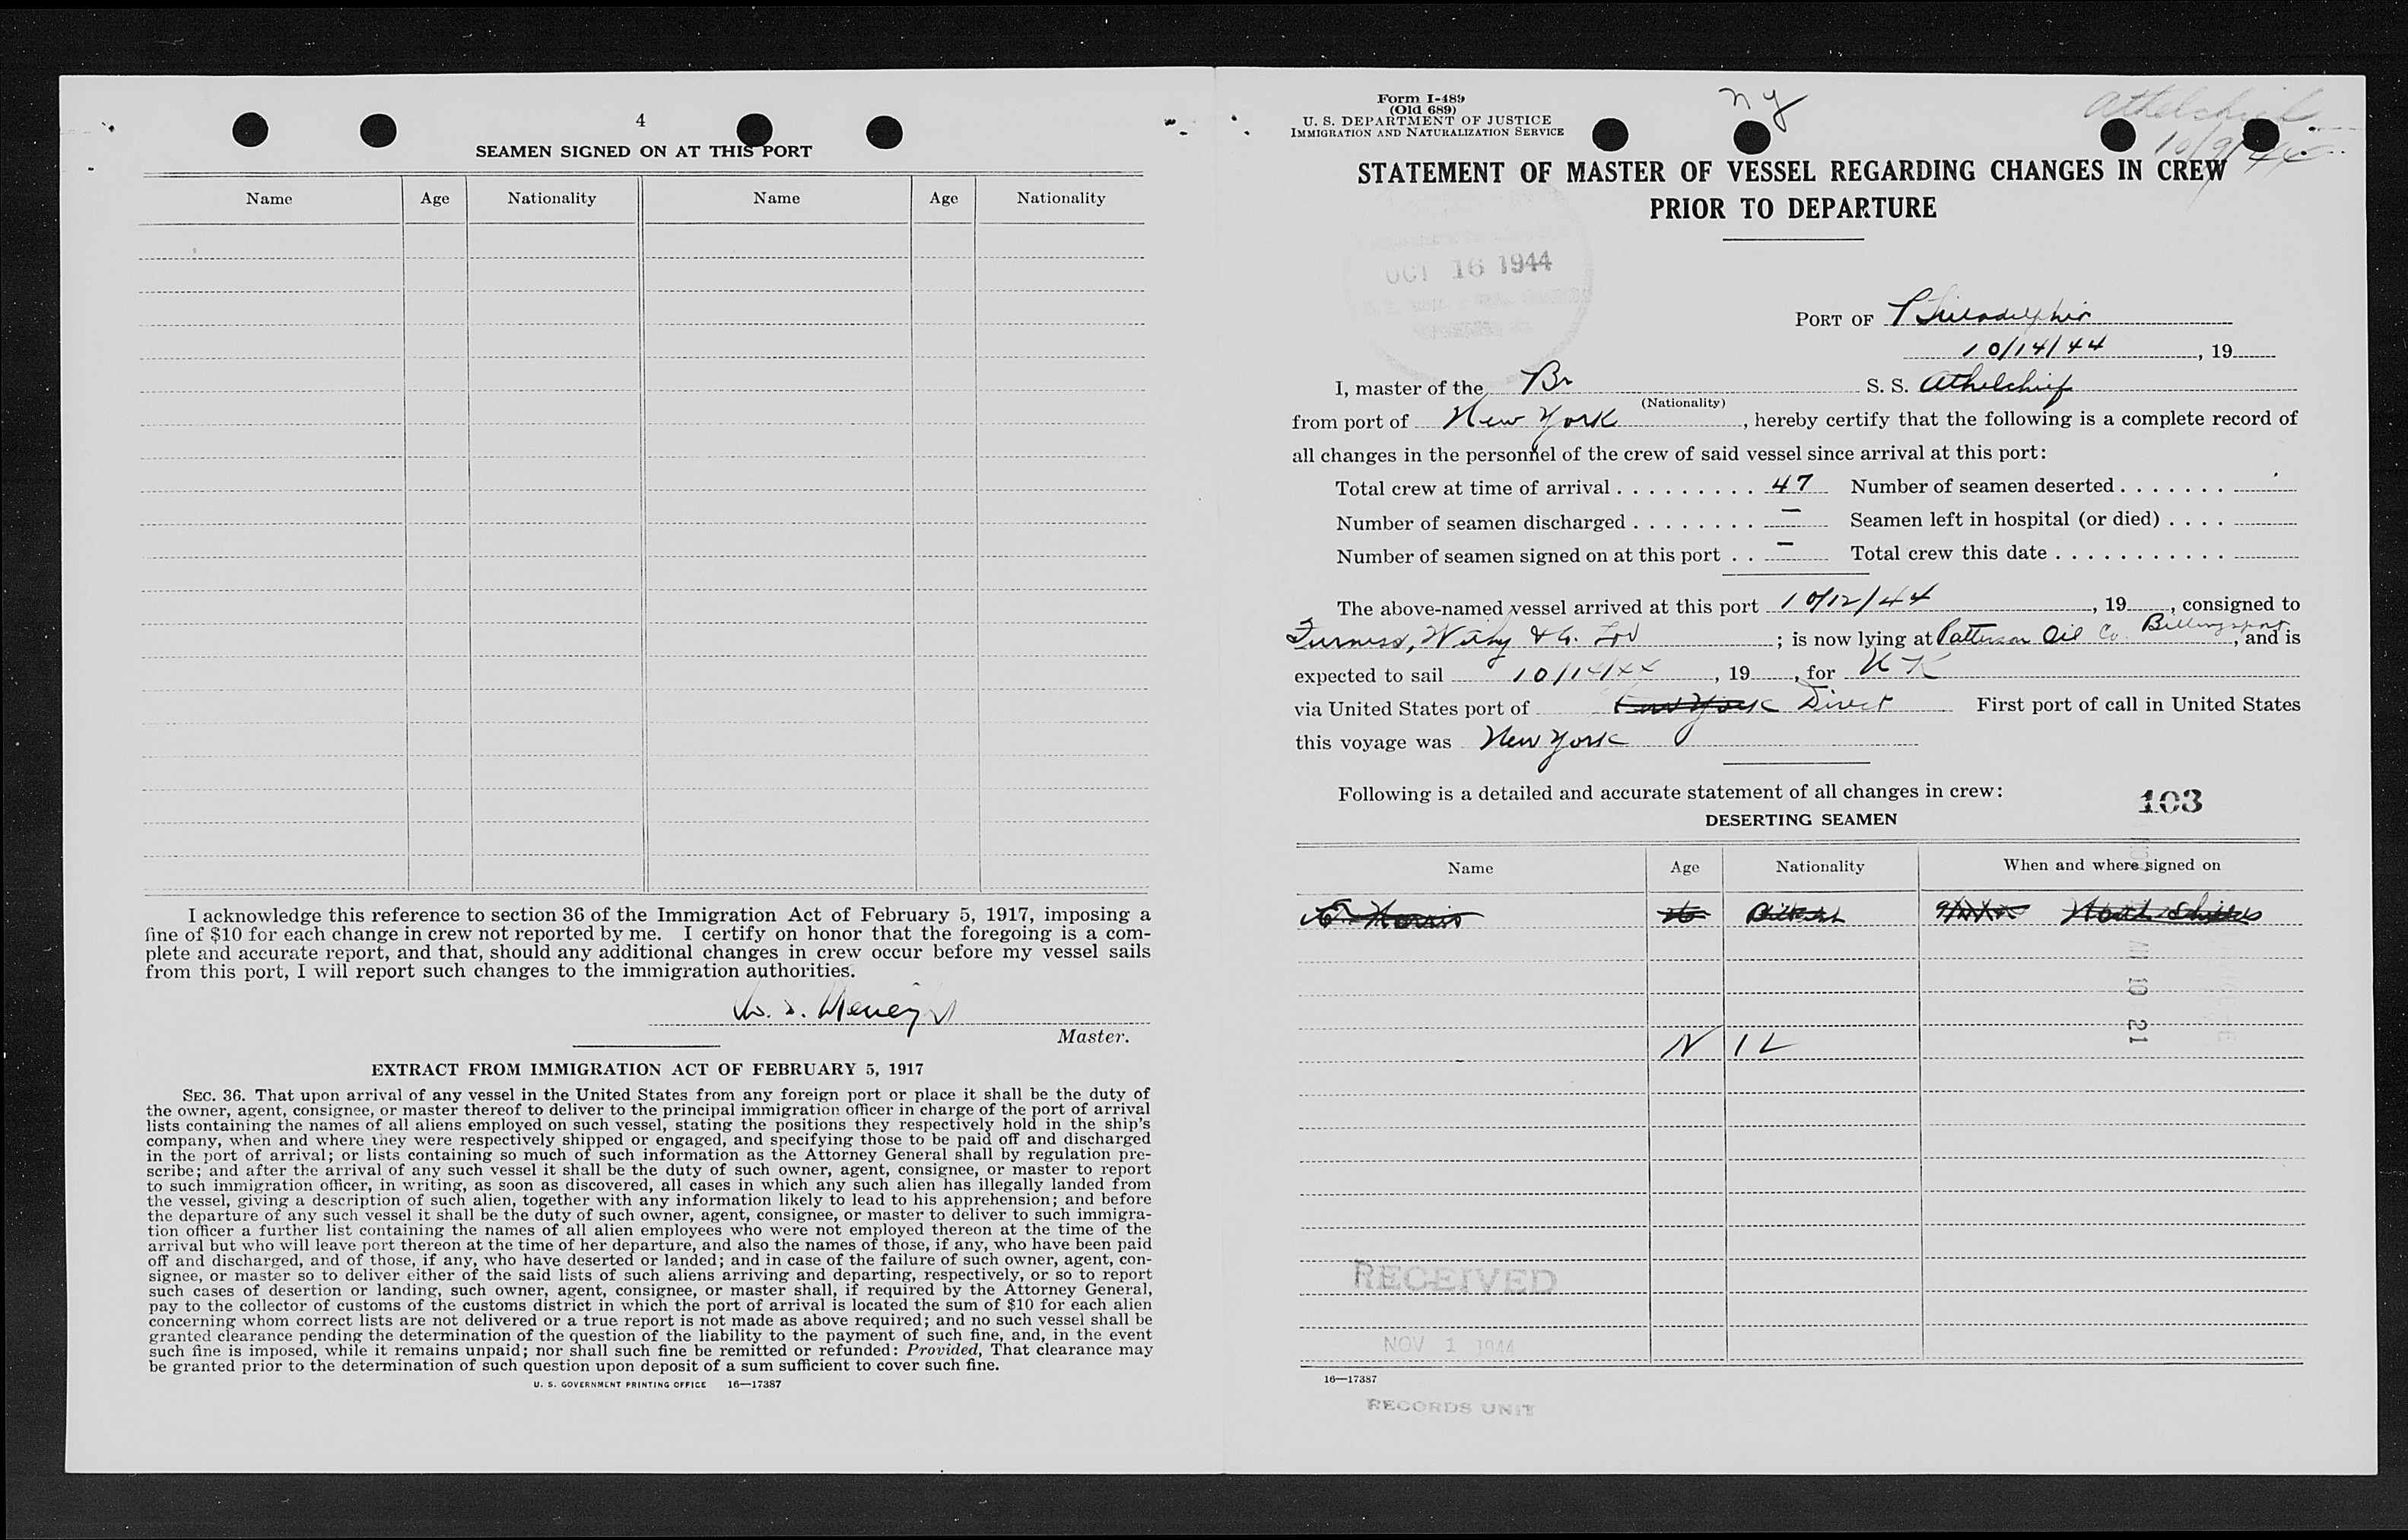 4
SEAMEN SIGNED ON AT THIS PORT
Name Age Nationality Name Age Nationality
I acknowledge this reference to section 36 of the Immigration Act of February 5, 1917, imposing a
fine of $10 for each change in crew not reported by me. I certify on honor that the foregoing is a com-
plete and accurate report, and that, should any additional changes in crew occur before my vessel sails
from this port, I will report such changes to the immigration authorities.
Master.
EXTRACT FROM IMMIGRATION ACT OF FEBRUARY 5, 1917
SEC. 36. That upon arrival of any vessel in the United States from any foreign port or place it shall be the duty of
the owner, agent, consignee, or master thereof to deliver to the principal immigration officer in charge of the port of arrival
lists containing the names of all aliens employed on such vessel, stating the positions they respectively hold in the ship's
company, when and where they were respectively shipped or engaged, and specifying those to be paid off and discharged
in the port of arrival; or lists containing so much of such information as the Attorney General shall by regulation pre-
scribe; and after the arrival of any such vessel it shall be the duty of such owner, agent, consignee, or master to report
to such immigration officer, in writing, as soon as discovered, all cases in which any such alien has illegally landed from
the vessel, giving a description of such alien, together with any information likely to lead to his apprehension; and before
the departure of any such vessel it shall be the duty of such owner, agent, consignee, or master to deliver to such immigra-
tion officer a further list containing the names of all alien employees who were not employed thereon at the time of the
arrival but who will leave port thereon at the time of her departure, and also the names of those, if any, who have been paid
off and discharged, and of those, if any, who have deserted or landed; and in case of the failure of such owner, agent, con-
signee, or master so to deliver either of the said lists of such aliens arriving and departing, respectively, or so to report
such cases of desertion or landing, such owner, agent, consignee, or master shall, if required by the Attorney General,
pay to the collector of customs of the customs district in which the port of arrival is located the sum of $10 for each alien
concerning whom correct lists are not delivered or a true report is not made as above required; and no such vessel shall be
granted clearance pending the determination of the question of the liability to the payment of such fine, and, in the event
such fine is imposed, while it remains unpaid; nor shall such fine be remitted or refunded: Provided, That clearance may
be granted prior to the determination of such question upon deposit of a sum sufficient to cover such fine.
U. S. GOVERNMENT PRINTING OFFICE 16—17387
Form I-489
(Old 689)
U. S. DEPARTMENT OF JUSTICE
IMMIGRATION AND NATURALIZATION SERVICE
NY
Athelchief
10/9/44
STATEMENT OF MASTER OF VESSEL REGARDING CHANGES IN CREW
PRIOR TO DEPARTURE
OCT 16 1944
PORT OF Philadelphia
10/14/44, 19
I, master of the Br S. S. Athelchief
(Nationality)
from port of New York, hereby certify that the following is a complete record of
all changes in the personnel of the crew of said vessel since arrival at this port:
Total crew at time of arrival . . . . . . . . . 47 Number of seamen deserted . . . . . . .
Number of seamen discharged . . . . . . . . — Seamen left in hospital (or died) . . . .
Number of seamen signed on at this port . . — Total crew this date . . . . . . . . . . .
The above-named vessel arrived at this port 10/12/44, 19, consigned to
Furness, Withy & Co. Ltd; is now lying at Patterson Oil Co. Billingsport, and is
expected to sail 10/14/44, 19, for UK
via United States port of New York Direct First port of call in United States
this voyage was New York
Following is a detailed and accurate statement of all changes in crew:
103
DESERTING SEAMEN
Name Age Nationality When and where signed on
Norris British North Shields
AM 10 21
NIL
RECEIVED
NOV 1 1944
16—17387
RECORDS UNIT